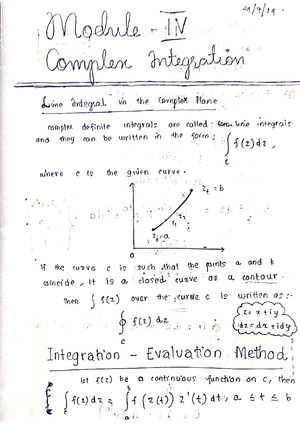 Module - IV
Complex Integration
Line Integral in the Complex Plane
complex definite integrals are called line integrals
and they can be written in the form: ∫_c f(z) dz,
where c is the given curve.
z_t = b
z_2
z_1
z_0 = a
0
If the curve c is such that the points a and b
coincide, it is a closed curve or a contour.
Then ∫ f(z) over the curve c is written as:-
∮_c f(z) dz
z = x + iy
dz = dx + idy
Integration - Evaluation Method
Let f(z) be a continuous function on c, then
∫_c f(z) dz = ∫_a^b f(z(t)) z'(t) dt, a ≤ t ≤ b